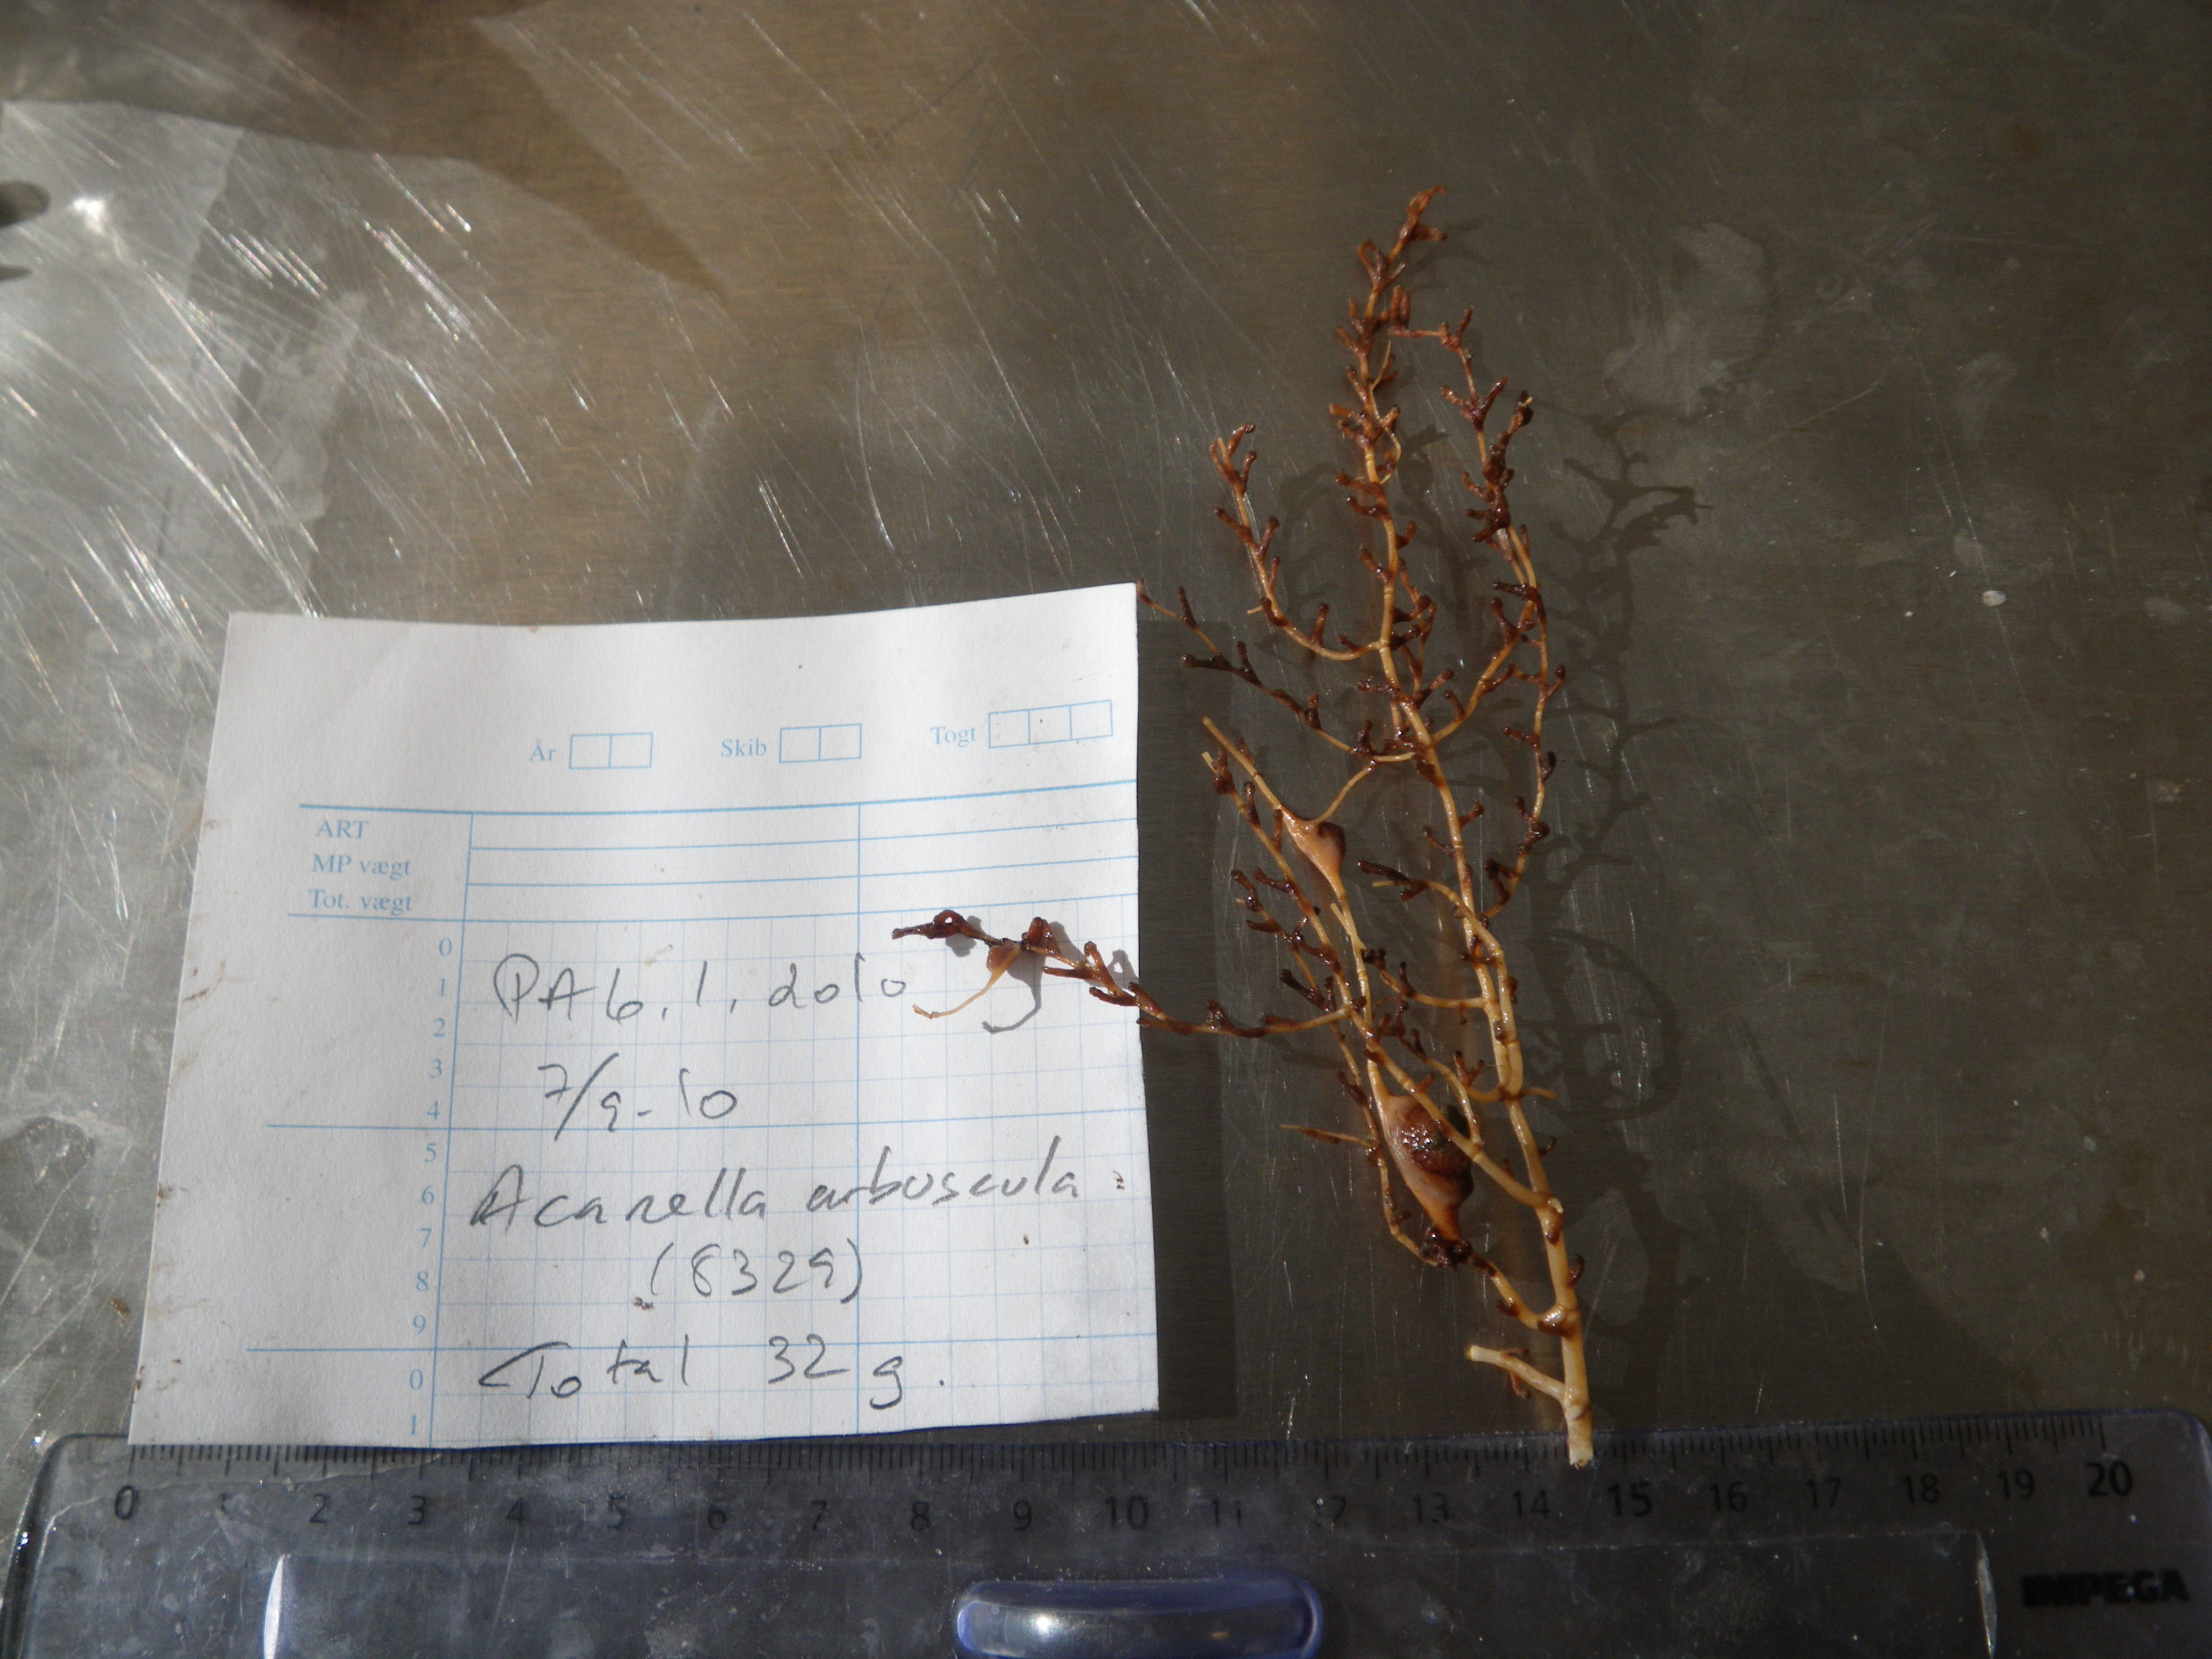 År Skib Togt
ART
MP vægt
Tot. vægt
0
1
2
3
4
5
6
7
8
9
0
1
PA 6, 1, 2010
7/9-10
Acanella arbuscula
(8329)
Total 32 g.
0 1 2 3 4 5 6 7 8 9 10 11 12 13 14 15 16 17 18 19 20
IMPEGA